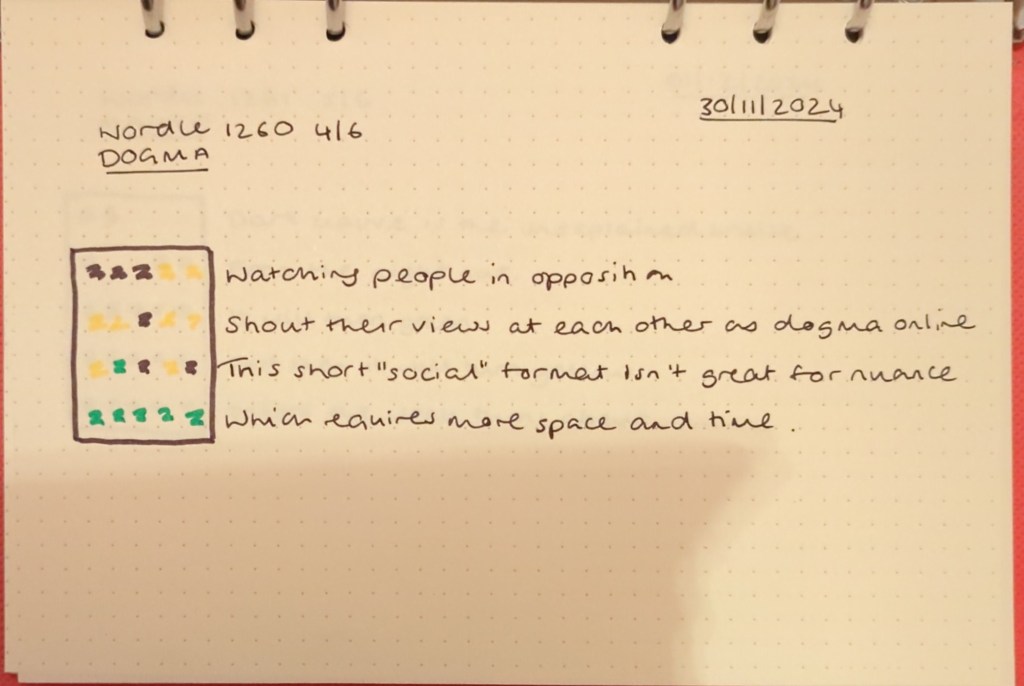 30/11/2024
Wordle 1260 4/6
DOGMA
Watching people in opposition
Shout their views at each other as dogma online
This short "social" format isn't great for nuance
Which requires more space and time.